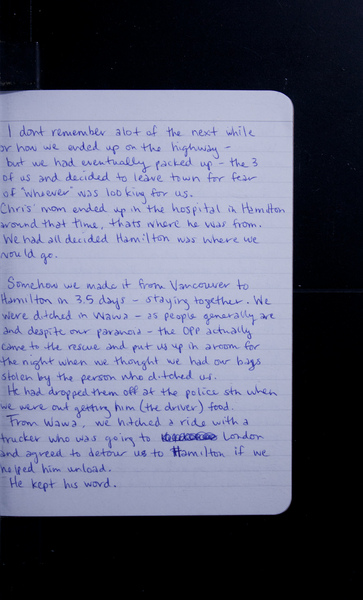 I dont remember alot of the next while
or how we ended up on the highway -
but we had eventually packed up - the 3
of us and decided to leave town for fear
of "whoever" was looking for us.
Chris' mom ended up in the hospital in Hamilton
around that time, thats where he was from.
We had all decided Hamilton was where we
would go.
Somehow we made it from Vancouver to
Hamilton in 3.5 days - staying together. We
were ditched in Wawa - as people generally are
and despite our paranoia - the OPP actually
came to the rescue and put us up in a room for
the night when we thought we had our bags
stolen by the person who ditched us.
He had dropped them off at the police stn when
we were out getting him (the driver) food.
From Wawa, we hitched a ride with a
trucker who was going to London
and agreed to detour us to Hamilton if we
helped him unload.
He kept his word.